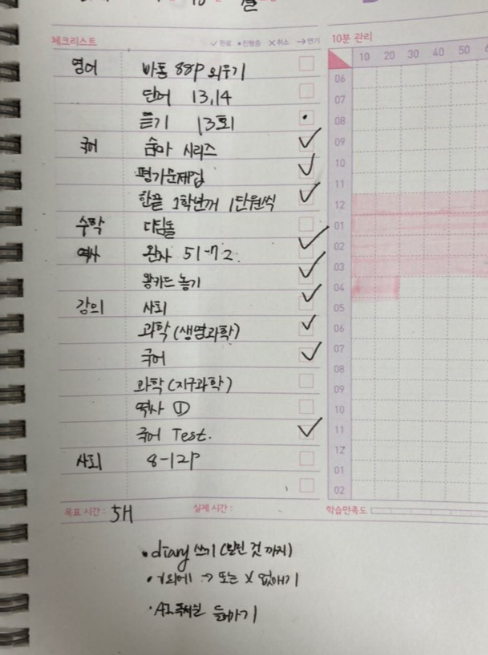 10
체크리스트 ✓완료 •진행중 ✕취소 →연기 10분 관리
10 20 30 40 50
영어 바통 88P 외우기
단어 13,14
듣기 13회
국어 숨마 시리즈
평가문제집
한끝 1학년꺼 1단원씩
수학 디딤돌
역사 완자 51-72.
왕카드 놀기
강의 사회
과학(생명과학)
국어
과학(지구과학)
역사 ①
국어 Test.
사회 8-12P
06
07
08
09
10
11
12
01
02
03
04
05
06
07
08
09
10
11
12
01
02
목표 시간: 5H 실제 시간: 학습만족도
• diary 쓰기 (밀린 것 까지)
• V외에 → 또는 X 없애기
•